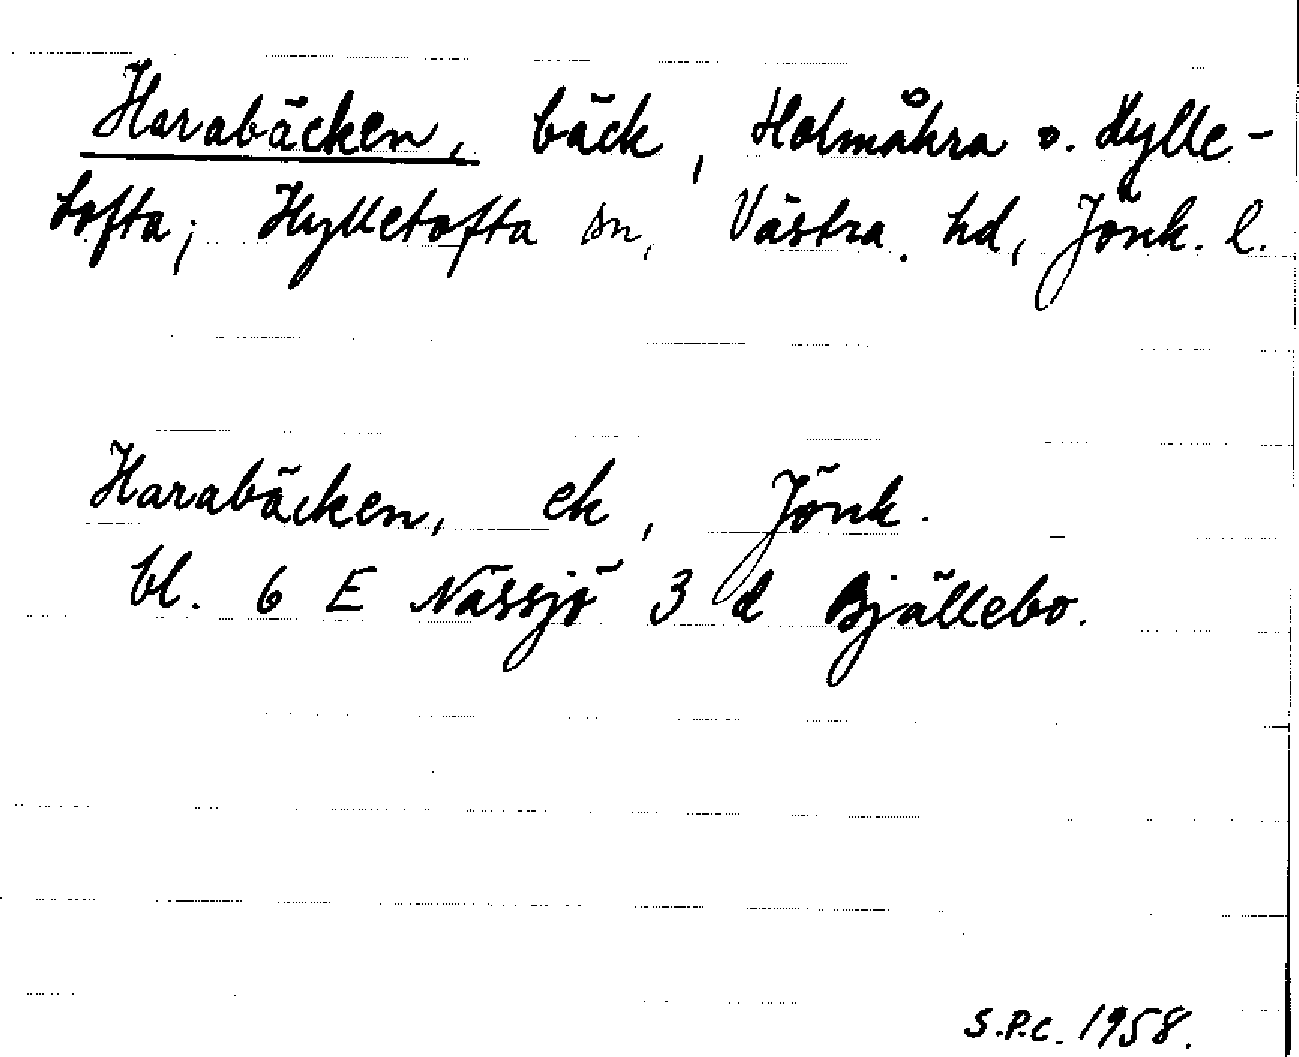 Harabäcken, bäck, Holmåkra o. Hylle-
tofta; Hylletofta sn, Västra hd, Jönk. l.
Harabäcken, ek, Jönk.
bl. 6 E Nässjö 3 d Bjällebo.
S.P.C. 1958.